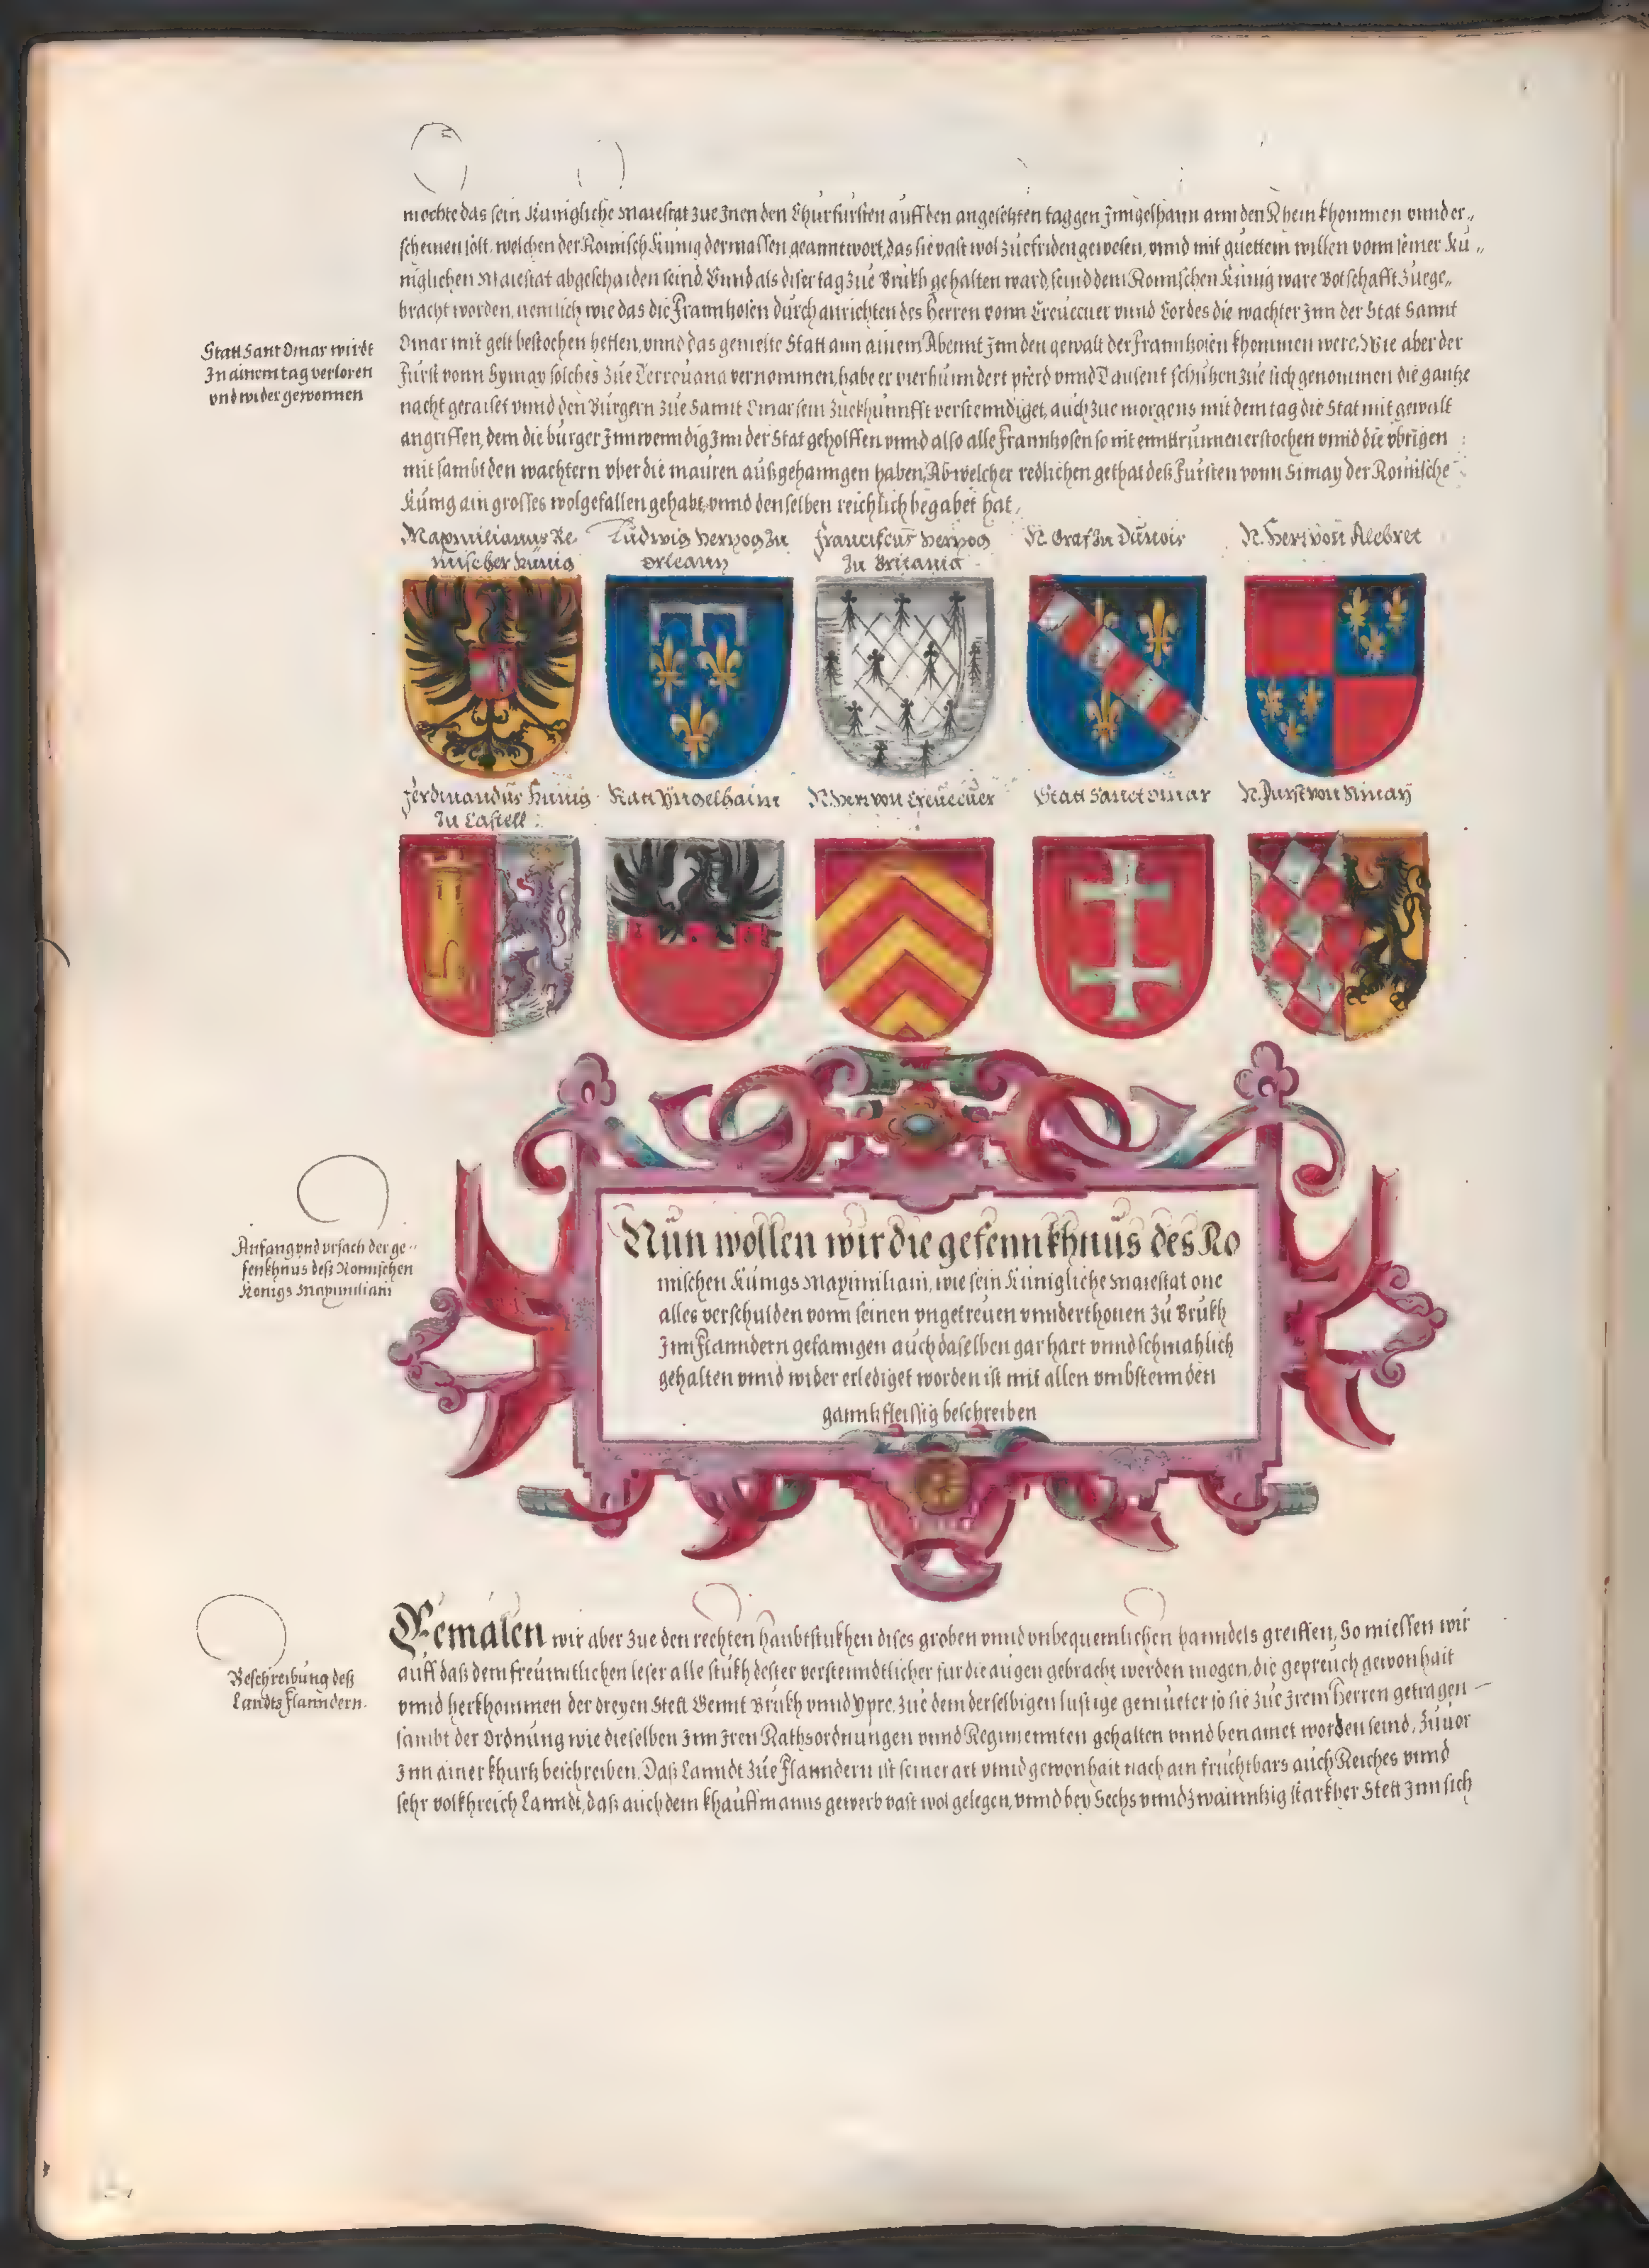 mechte das sein Kunigliche Maiestat zue Jnen den Churfursten auff den angesetzten tag gen Jnngelhaim ann den Rhein khommen vnnd er„
scheinen solt. welchen der Romisch Kunig dermassen geanntwort, das sie vast wol zuefriden gewesen, vnnd mit guettem willen vonn seiner Ku„
niglichen Maiestat abgeschaiden seind. Vnnd als diser tag zue Brukh gehalten ward, seind dem Romischen Kunig ware Botschafft zuege„
bracht worden, nemlich wie das die Frannhosen durch anrichten des Herren vonn Creuecuer vnnd Cordes die wachter Jnn der Stat Sannt
Omar mit gelt bestochen hetten, vnnd das gemelte Statt ann ainem Abennt Jnn den gewalt der Frannhosen khommen were. Wie aber der
Furst vonn Symay solches zue Terrouana vernommen, habe er vierhunndert pferd vnnd Tausent schutzen zue sich genommen die gantze
nacht geraiset vnnd den Burgern zue Sannt Omar sein zuekhunnfft verstenndiget, auch zue morgens mit dem tag die Stat mit gewalt
angriffen, dem die burger Jnnwenndig Jnn der Stat geholffen vnnd also alle Frannhosen so nit enntrunnen erstochen vnnd die vbrigen
mit sambt den wachtern vber die mauren außgehanngen haben, Ab welcher redlichen gethat deß Fursten vonn Simay der Romische
Kunig ain grosses wolgefallen gehabt, vnnd denselben reichlich begabet hat.
Statt Sant Omar wirdt
Jn ainem tag verloren
vnd wider gewonnen
Maximilianus Re
mischer Künig
Ludwig Hertzog zu
Orleans
Franciscus Hertzog
zu Britania
N. Graf zu Dunois
N. Herr von Alebret
Ferdinandus Künig
zu Castell
Statt Yngelhaim
N. Herr von Creuecuer
Statt Sanct Omar
N. Furst von Simay
Anfang vnd vrsach der ge„
fenkhnus deß Romischen
Konigs Maximiliani
Nun wollen wir die gefennkhnus des Ro
mischen Kunigs Maximiliani, wie sein Kunigliche Maiestat one
alles verschulden vonn seinen vngetreuen vnnderthonen zu Brukh
Jnn Flanndern gefanngen auch daselben gar hart vnnd schmahlich
gehalten vnnd wider erlediget worden ist mit allen vmbstennden
ganntz fleissig beschreiben
Beschreibung deß
Landts Flanndern.
Eemalen wir aber zue den rechten haubtstukhen dises groben vnnd vnbequemlichen hanndels greiffen, So miessen wir
auff daß dem freunntlichen leser alle stukh dester verstenndtlicher fur die augen gebracht werden mogen, die gepreuch gewonhait
vnnd herkhommen der dreyen Stett Gennt Brukh vnnd Ypre, zue dem derselbigen lustige gemueter so sie zue Jrem Herren getragen
sambt der Ordnung wie dieselben Jnn Jren Rathsordnungen vnnd Regimennten gehalten vnnd benamet worden seind, zuuor
Jnn ainer khurtz beschreiben. Daß Lanndt zue Flanndern ist seiner art vnnd gewonhait nach ain fruchtbars auch Reiches vnnd
sehr volkhreich Lanndt, daß auch dem khauffmanns gewerb vast wol gelegen, vnnd bey Sechs vnnd zwainntzig starkher Stett Jnn sich